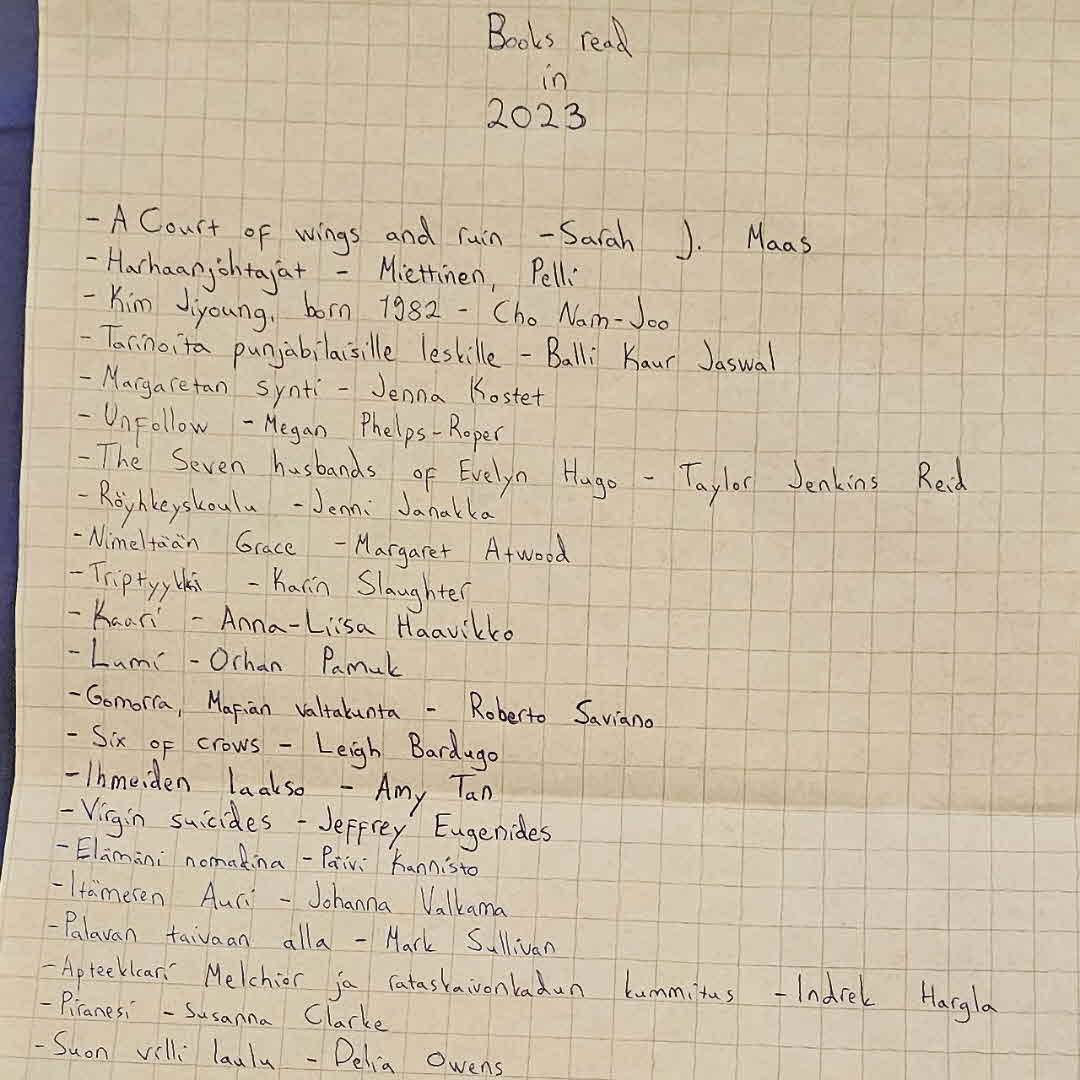 Books read
in
2023
- A Court of wings and ruin - Sarah J. Maas
- Harhaanjohtajat - Miettinen, Pelli
- Kim Jiyoung, born 1982 - Cho Nam-Joo
- Tarinoita punjabilaisille leskille - Balli Kaur Jaswal
- Margaretan synti - Jenna Kostet
- Unfollow - Megan Phelps-Roper
- The Seven husbands of Evelyn Hugo - Taylor Jenkins Reid
- Röyhkeyskoulu - Jenni Janakka
- Nimeltään Grace - Margaret Atwood
- Triptyykki - Karin Slaughter
- Kaari - Anna-Liisa Haavikko
- Lumi - Orhan Pamuk
- Gomorra, Mafian valtakunta - Roberto Saviano
- Six of crows - Leigh Bardugo
- Ihmeiden laakso - Amy Tan
- Virgin suicides - Jeffrey Eugenides
- Elämäni nomadina - Päivi Kannisto
- Itämeren Auri - Johanna Valkama
- Palavan taivaan alla - Mark Sullivan
- Apteekkari Melchior ja rataskaivonkadun kummitus - Indrek Hargla
- Piranesi - Susanna Clarke
- Suon villi laulu - Delia Owens